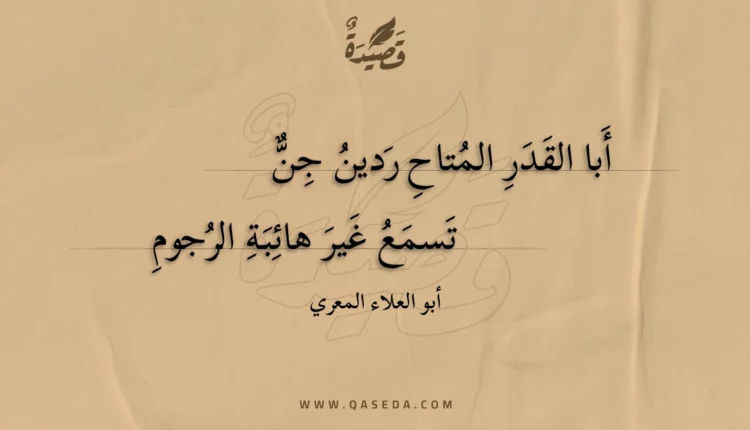 قَصِيْدَةٌ
أَبا القَدَرِ المُتاحِ رَدينُ جِنٌّ
تَسمَعُ غَيرَ هائِبَةِ الرُجومِ
أبو العلاء المعري
WWW.QASEDA.COM